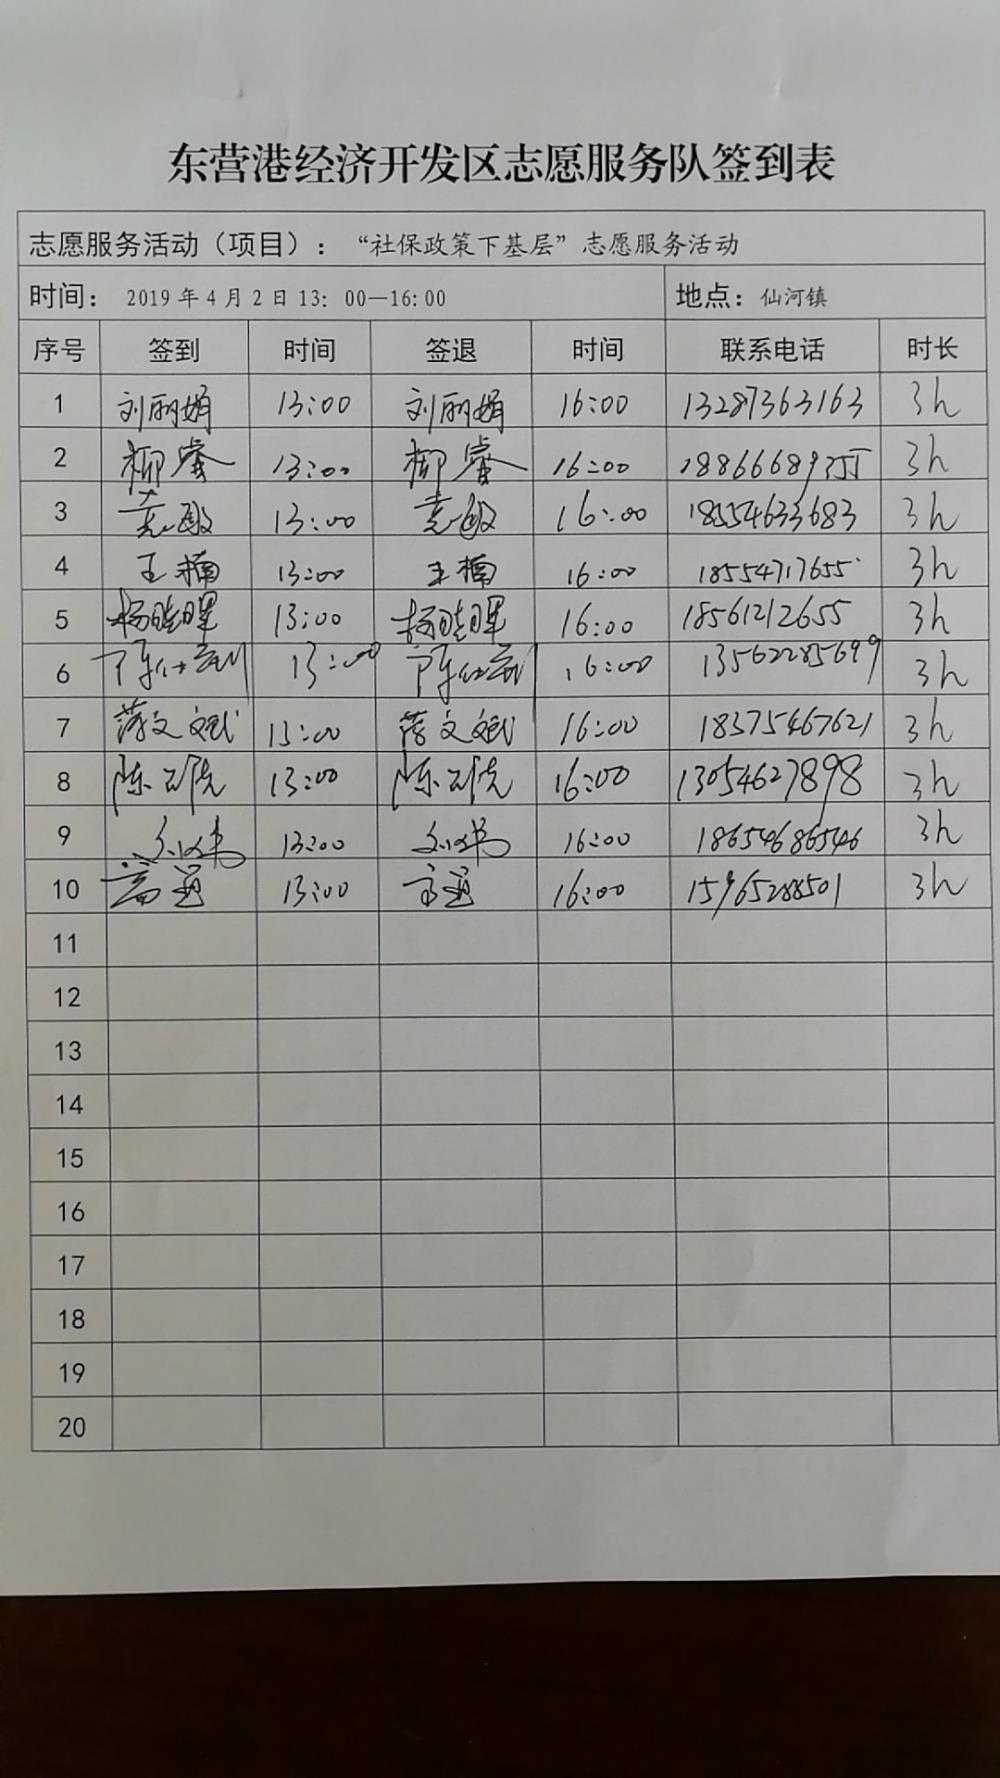 东营港经济开发区志愿服务队签到表
志愿服务活动（项目）：“社保政策下基层”志愿服务活动
时间： 2019年4月2日13：00—16：00 地点：仙河镇
序号 签到 时间 签退 时间 联系电话 时长
1 刘丽娟 13:00 刘丽娟 16:00 13287363163 3h
2 柳睿 13:00 柳睿 16:00 3h
3 13:00 16:00 18554633683 3h
4 王楠 13:00 王楠 16:00 18554717655 3h
5 杨晓晖 13:00 杨晓晖 16:00 18561212655 3h
6 13:00 16:00 13562285699 3h
7 蒋文斌 13:00 蒋文斌 16:00 18375467621 3h
8 13:00 16:00 13054627898 3h
9 13:00 16:00 18654686546 3h
10 13:00 16:00 15965288501 3h
11
12
13
14
15
16
17
18
19
20